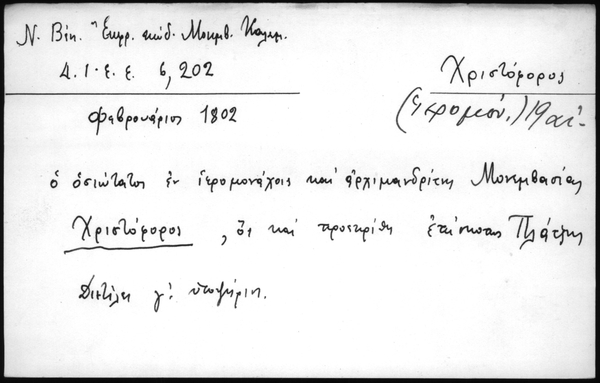 Ν. Βέη. "Έκφρ. κώδ. Μονεμβ. Καλαμ.
Δ.Ι.Ε.Ε. 6, 202
Χριστόφορος
(Ἱερομόν.) 19 αἰ.
Φεβρουάριος 1802
ὁ ὁσιώτατος ἐν ἱερομονάχοις καὶ ἀρχιμανδρίτης Μονεμβασίας
Χριστόφορος, ὃς καὶ προεκρίθη ἐπίσκοπος Πλάτζης
Διετέλει γ! ὑποψήφιος.